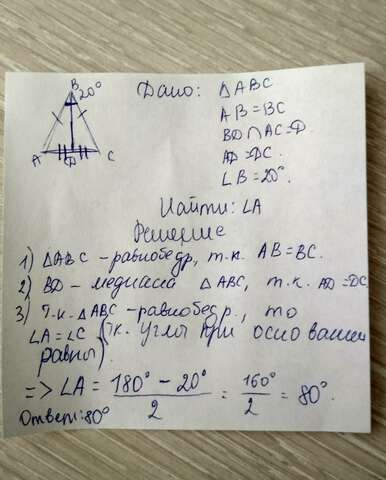 B
20°
A
D
C
Дано: △ABC
AB = BC
BD ∩ AC = D
AD = DC.
∠B = 20°.
Найти: ∠A
Решение
1) △ABC - равнобедр, т.к. AB = BC.
2) BD - медиана △ABC, т.к. AD = DC
3) Т.к. △ABC - равнобедр., то
∠A = ∠C (т.к. углы при основании
равны).
=> ∠A = 180° - 20° / 2 = 160° / 2 = 80°.
Ответ: 80°